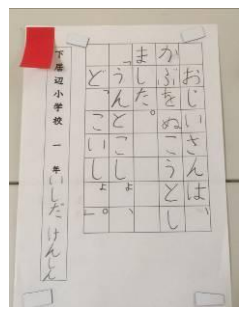 おじいさんは、
かぶをぬこうとし
ました。
「うんとこしょ、
どっこいしょ。」
下居辺小学校 一年 いしだ けんしん